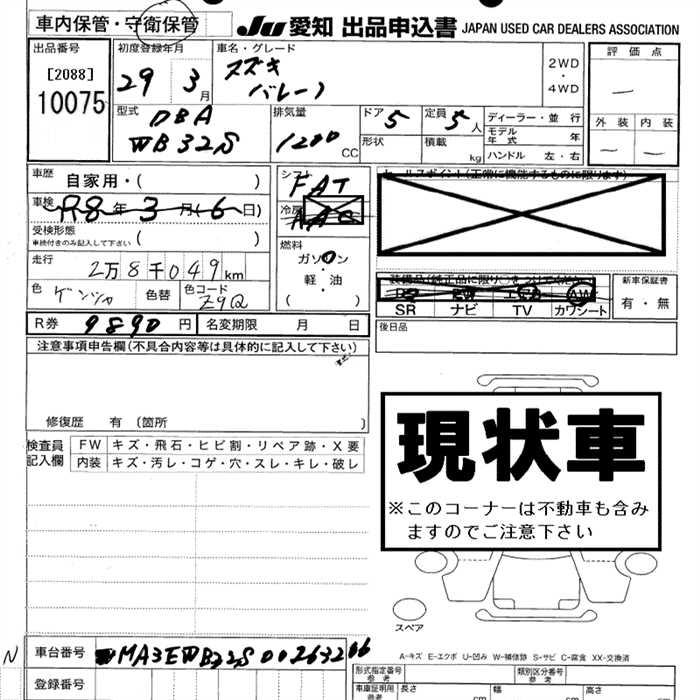 車内保管・守衛保管
JU 愛知 出品申込書 JAPAN USED CAR DEALERS ASSOCIATION
出品番号
[2088]
10075
初度登録年月
29 3月
車名・グレード
スズキ
バレーノ
2WD
・
4WD
評価点
—
外装 内装
— —
型式
DBA
WB32S
排気量
1200 CC
ドア 5
形状
定員 5人
積載 kg
ディーラー・並行
モデル年式 年
ハンドル 左・右
車歴 自家用・( )
車検 R8年3月(6日)
受検形態
車検付きのみ記入して下さい ( )
走行 2万8千049km
色 ゲンシャ 色替 色コード Z9Q
シフト
FAT
冷房
AAC
燃料
ガソリン
・
軽・油
( )
セールスポイント(正常に機能するものに限ります)
SR ナビ TV カワシート
AW
新車保証書
有・無
R券 9890円 名変期限 月 日
後日品
注意事項申告欄(不具合内容等は具体的に記入して下さい)
修復歴 有 〔箇所 〕
検査員記入欄
FW キズ・飛石・ヒビ割・リペア跡・X要
内装 キズ・汚レ・コゲ・穴・スレ・キレ・破レ
現状車
※このコーナーは不動車も含み
ますのでご注意下さい
スペア
A-キズ E-エクボ U-凹み W-補修跡 S-サビ C-腐食 XX-交換済
N
車台番号 MA3EWB32S00263266
登録番号
形式指定番号
参考
類別区分番号
参考
車庫証明用
参考
長さ cm
幅 cm
高 cm